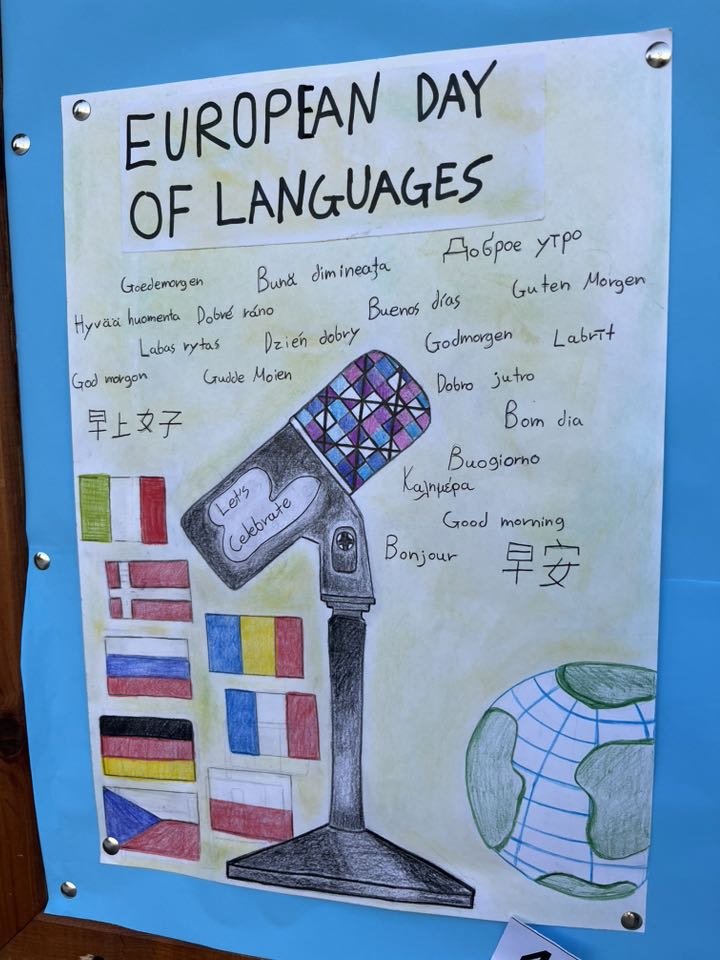 EUROPEAN DAY
OF LANGUAGES
Доброе утро
Goedemorgen
Bună dimineața
Guten Morgen
Hyvää huomenta
Dobré ráno
Buenos días
Labas rytas
Dzień dobry
Godmorgen
Labrīt
God morgon
Gudde Moien
Dobro jutro
早上女子
Bom dia
Buogiorno
Καλημέρα
Let's
Celebrate
Good morning
Bonjour
早安